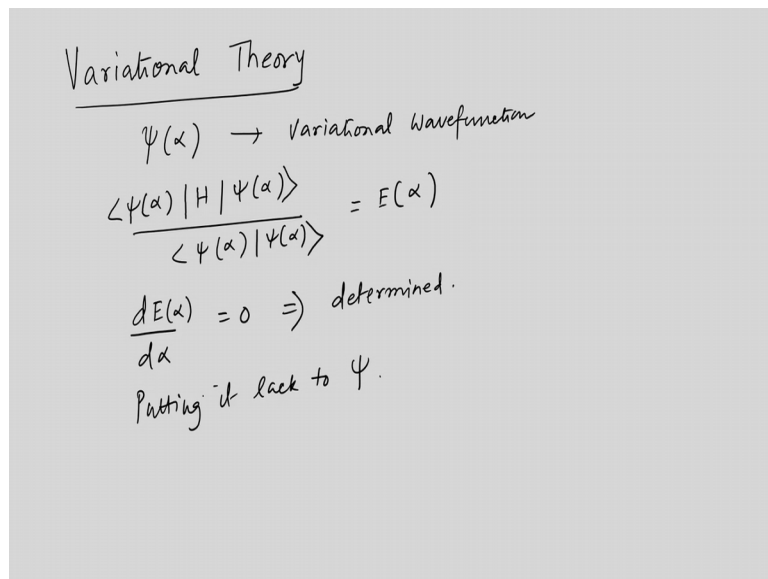 Variational Theory
Ψ(α) → Variational Wavefunction
<Ψ(α)|H|Ψ(α)> / <Ψ(α)|Ψ(α)> = E(α)
dE(α)/dα = 0 ⇒ determined.
Putting it back to Ψ.